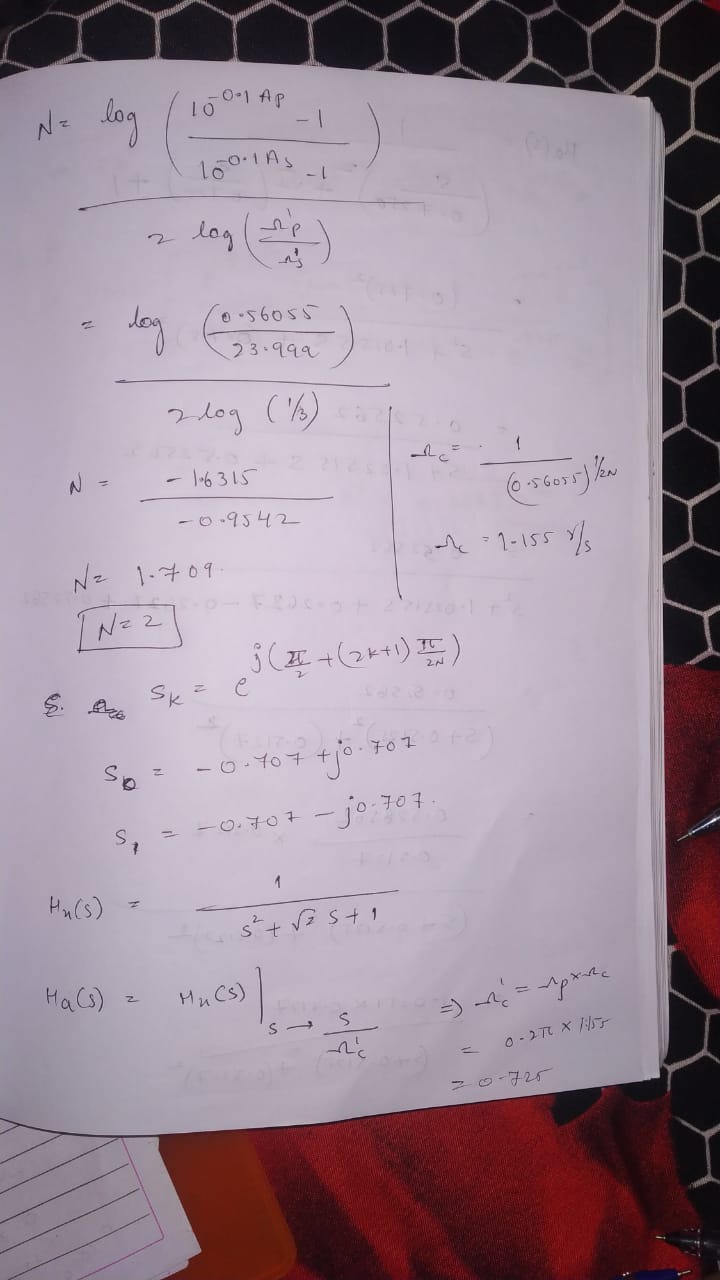 N = log ( 10^-0.1Ap - 1 / 10^-0.1As - 1 )
2 log ( Ω'p / Ω's )
= log ( 0.56055 / 23.999 )
2 log (1/3)
N = -1.6315 / -0.9542
Ωc = 1 / (0.56055)^1/2N
Ωc = 1.155 r/s
N = 1.709.
N = 2
S_K = e^j(π/2 + (2k+1) π/2N)
S0 = -0.707 + j0.707
S1 = -0.707 - j0.707.
Hn(s) = 1 / s² + √2 s + 1
Ha(s) = Hn(s) | s → s / Ω'c
⇒ Ω'c = Ωp × Ωc
= 0.2π × 1.155
= 0.725